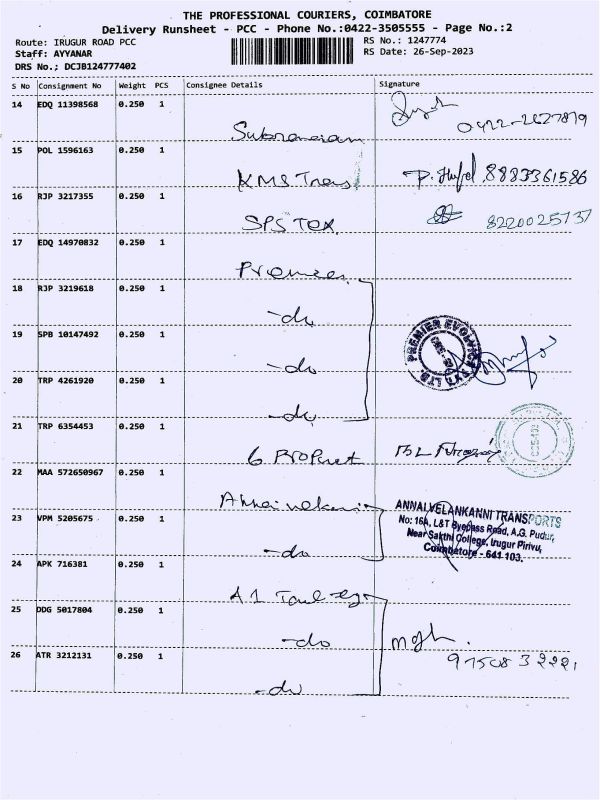 THE PROFESSIONAL COURIERS, COIMBATORE
Delivery Runsheet - PCC - Phone No.:0422-3505555 - Page No.:2
Route: IRUGUR ROAD PCC RS No.: 1247774
Staff: AYYANAR RS Date: 26-Sep-2023
DRS No.; DCJB124777402
S No Consignment No Weight PCS Consignee Details Signature
14 EDQ 11398568 0.250 1
0422-2627819
15 POL 1596163 0.250 1
KMS Trans 8883361586
16 RJP 3217355 0.250 1
SPS TEX 8220025737
17 EDQ 14970832 0.250 1
Premier
18 RJP 3219618 0.250 1
-do
19 SPB 10147492 0.250 1
-do
PREMIER EVOLVICS PVT LTD.
20 TRP 4261920 0.250 1
-do
21 TRP 6354453 0.250 1
22 MAA 572650967 0.250 1
ANNAI VELANKANNI TRANSPORTS
23 VPM 5205675 0.250 1
No: 16A, L&T Byepass Road, A.G. Pudur,
Near Sakthi College, Irugur Pirivu,
Coimbatore - 641 103.
-do
24 APK 716381 0.250 1
A1
25 DDG 5017804 0.250 1
-do
26 ATR 3212131 0.250 1
-do